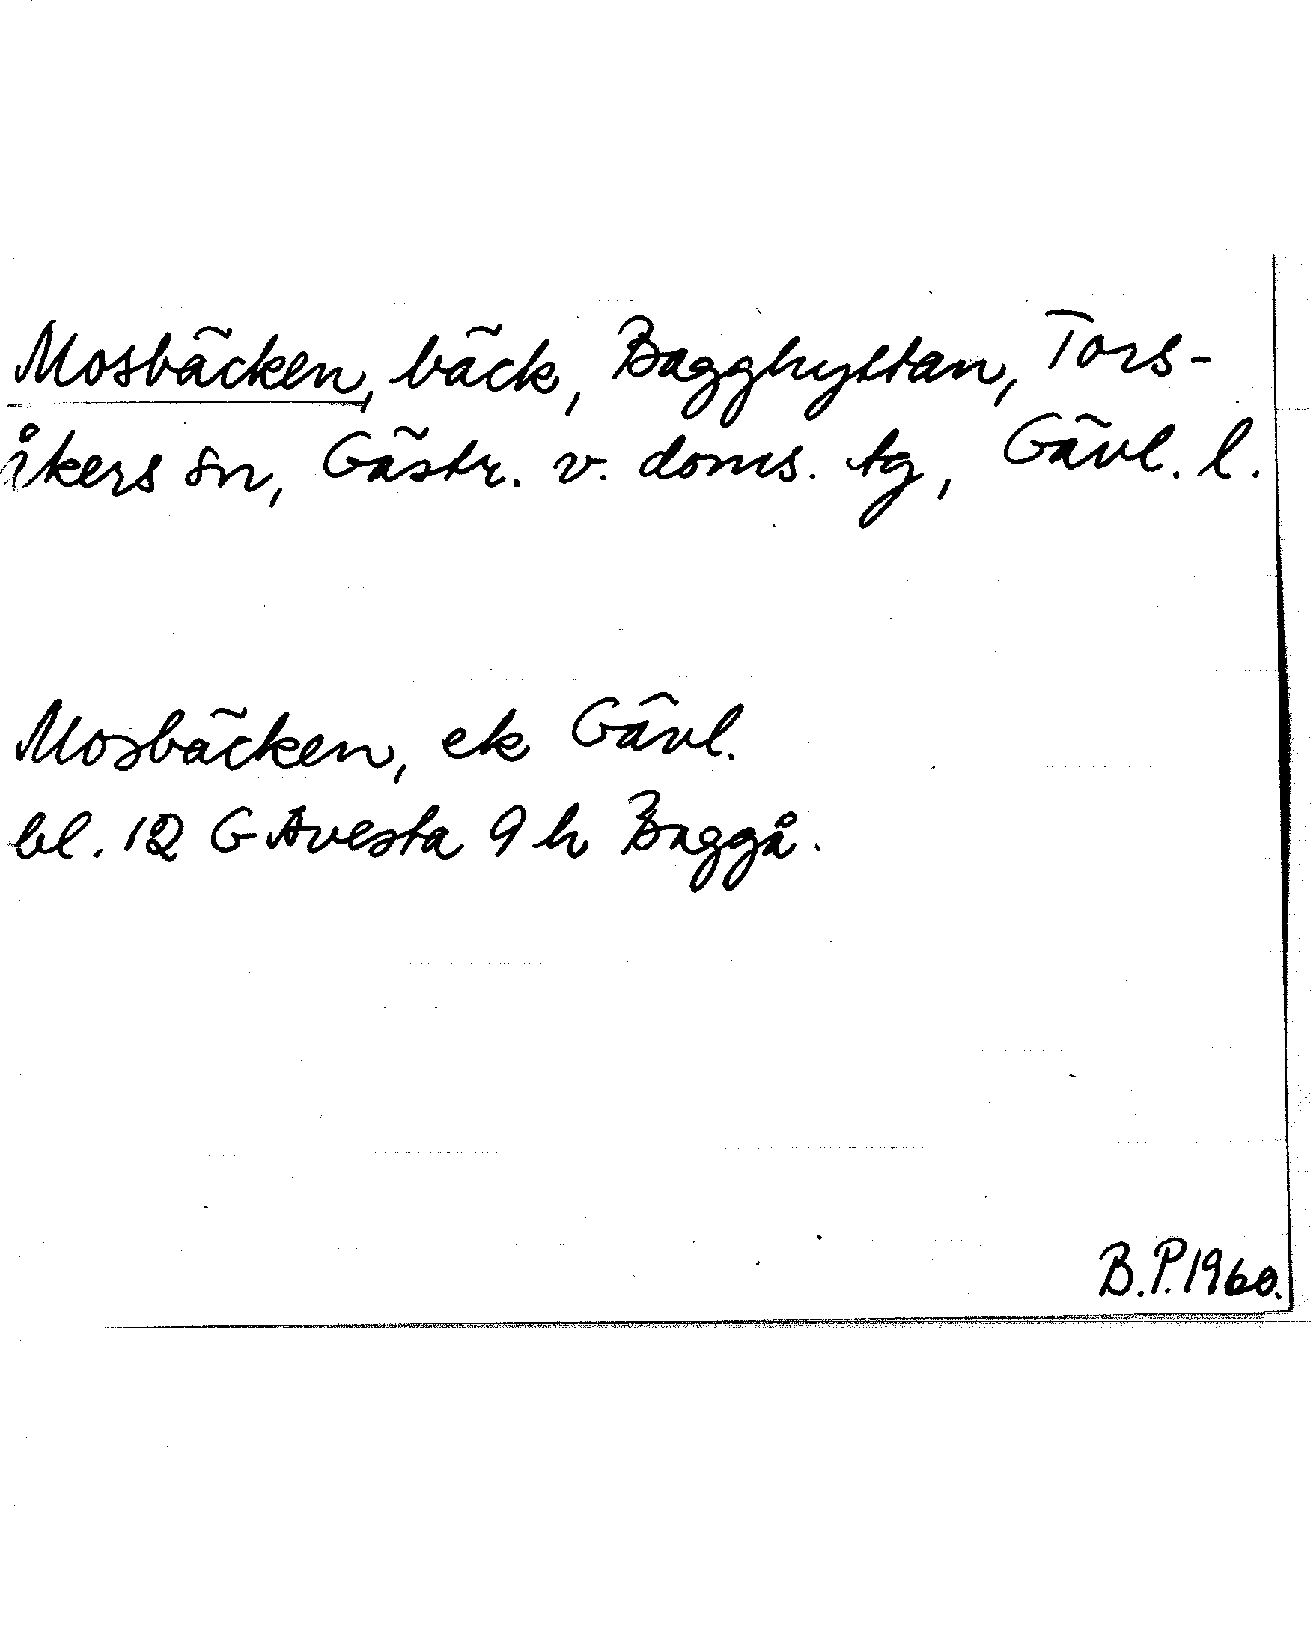 Mosbäcken, bäck, Bagghyttan, Tors-
åkers sn, Gästr. v. doms. tg, Gävl. l.
Mosbäcken, ek Gävl.
bl. 12 G Avesta 9 h Baggå.
B.P. 1960.